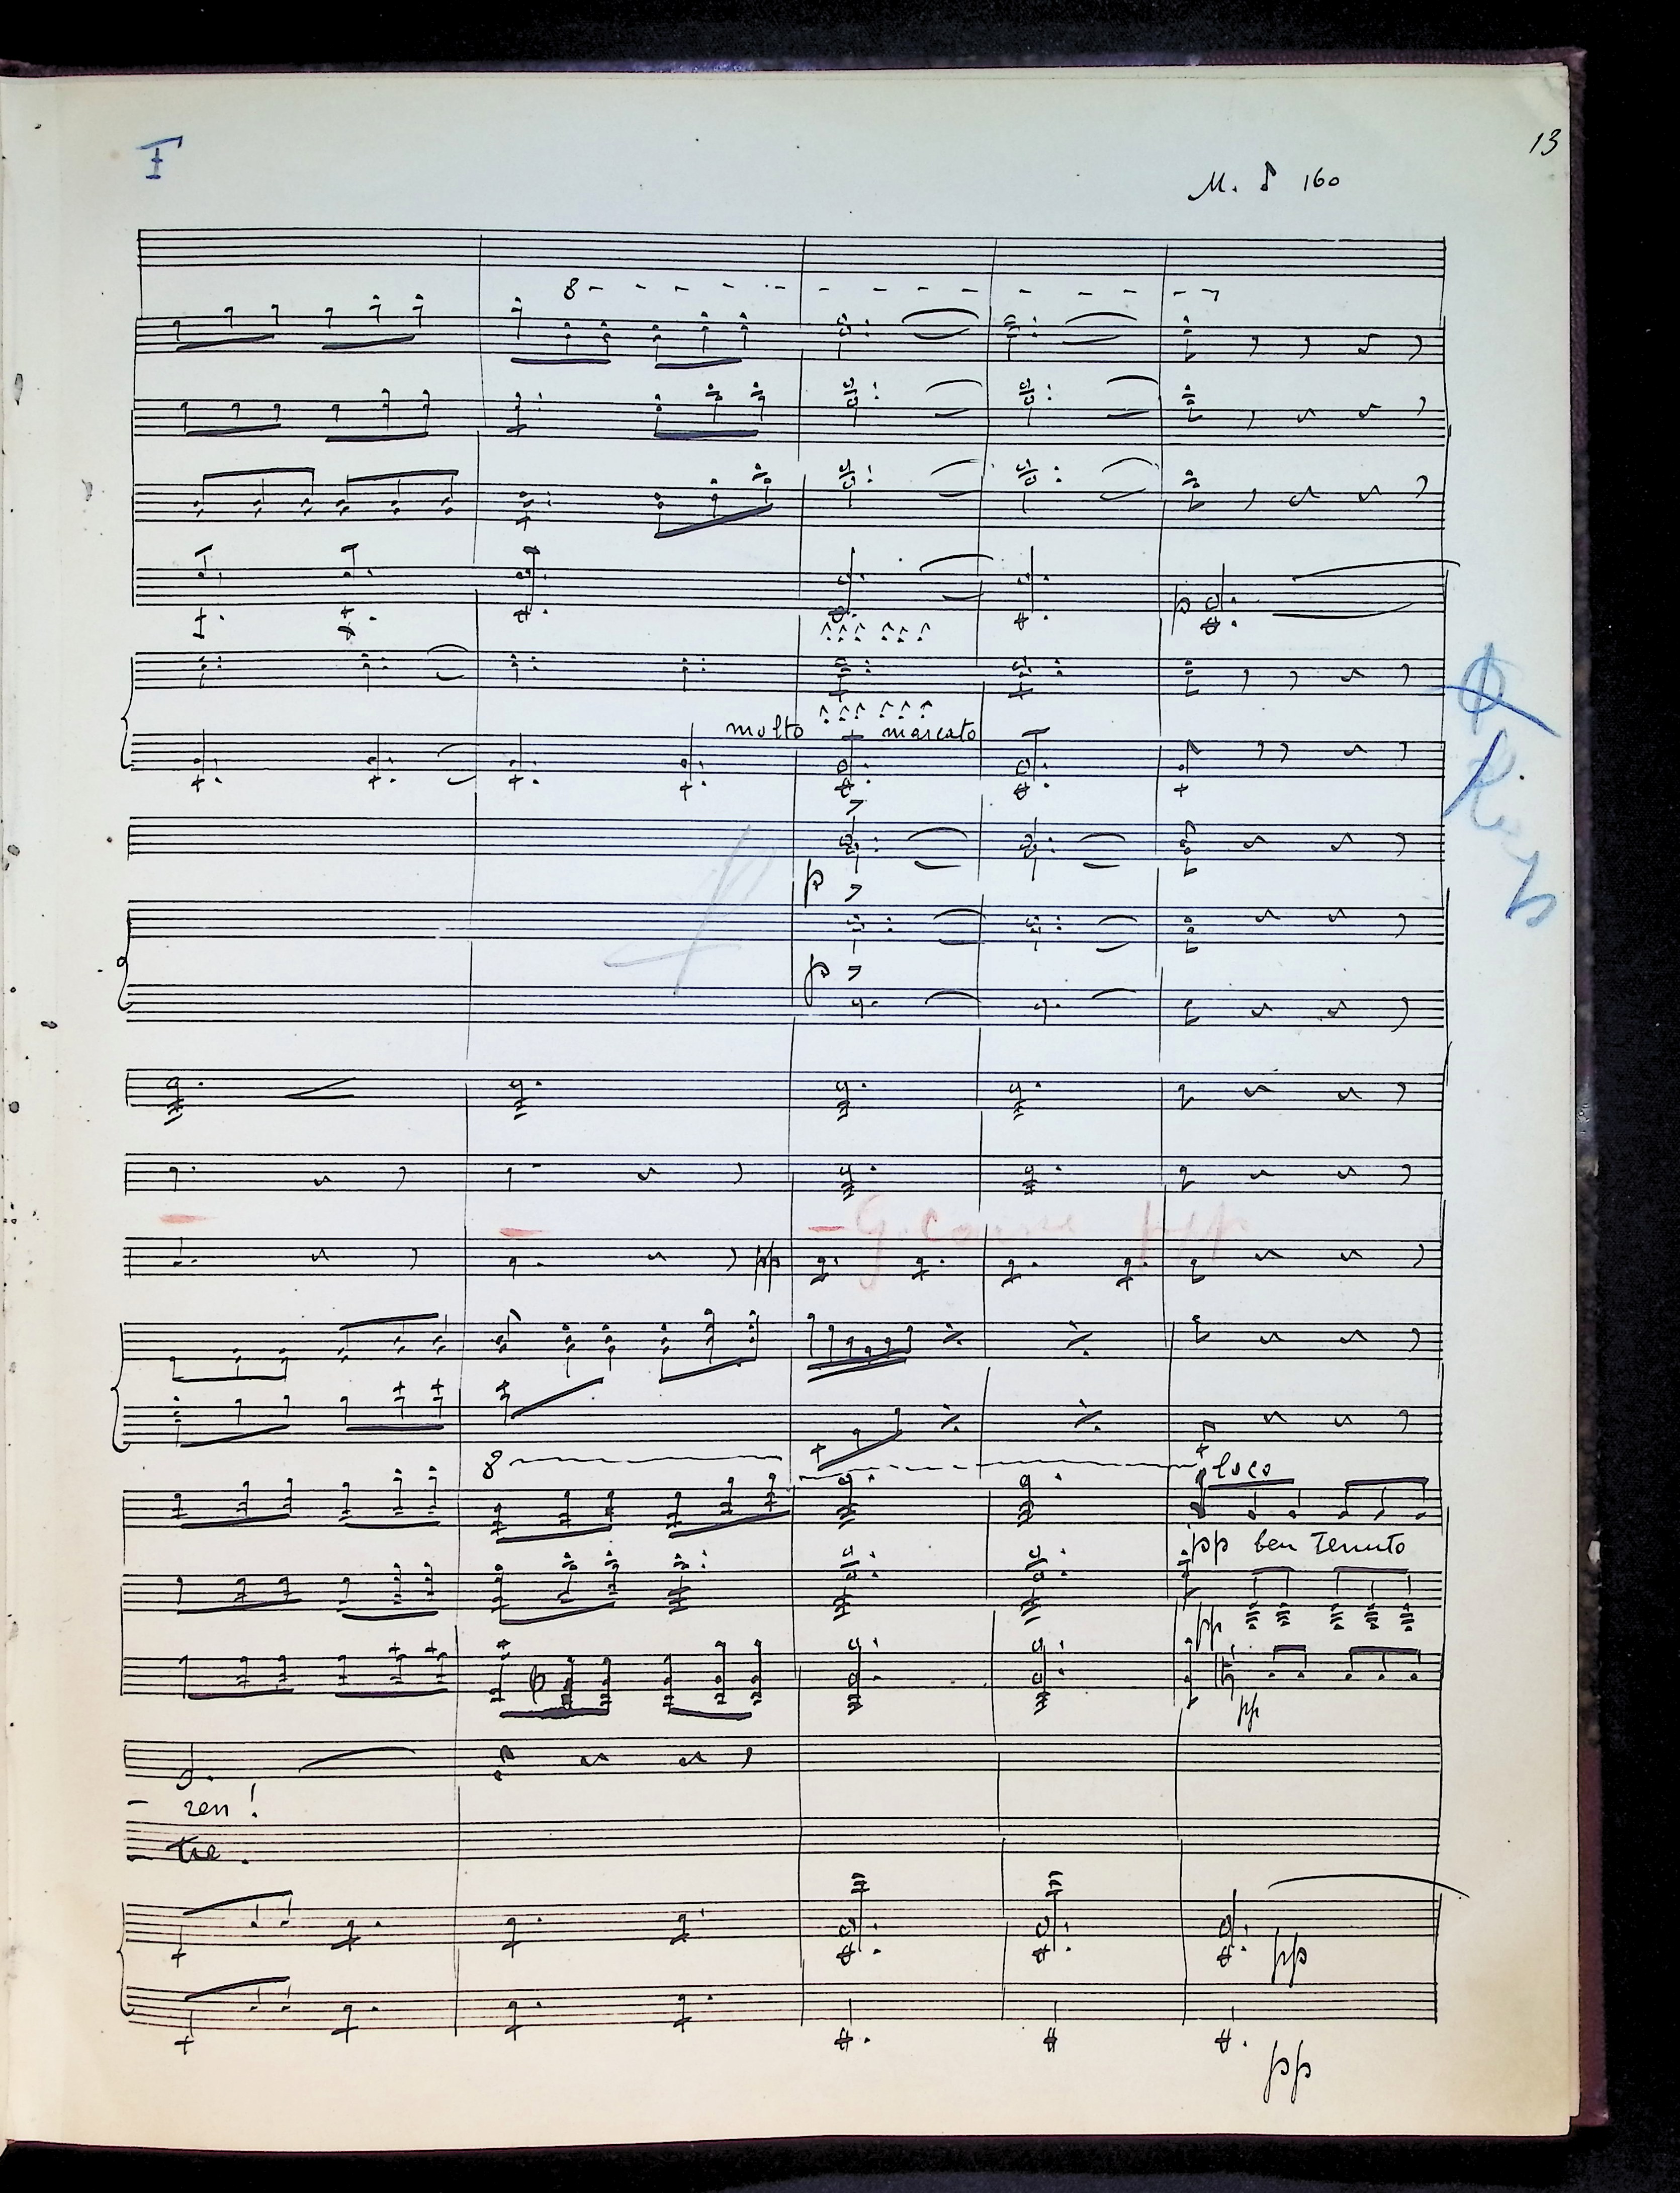 F
13
M. ♪ 160
8
molto marcato
p
p
p
G. Caisse ppp
pp
8
loco
pp ben tenuto
pp
pp
- ren!
- tre.
pp
pp